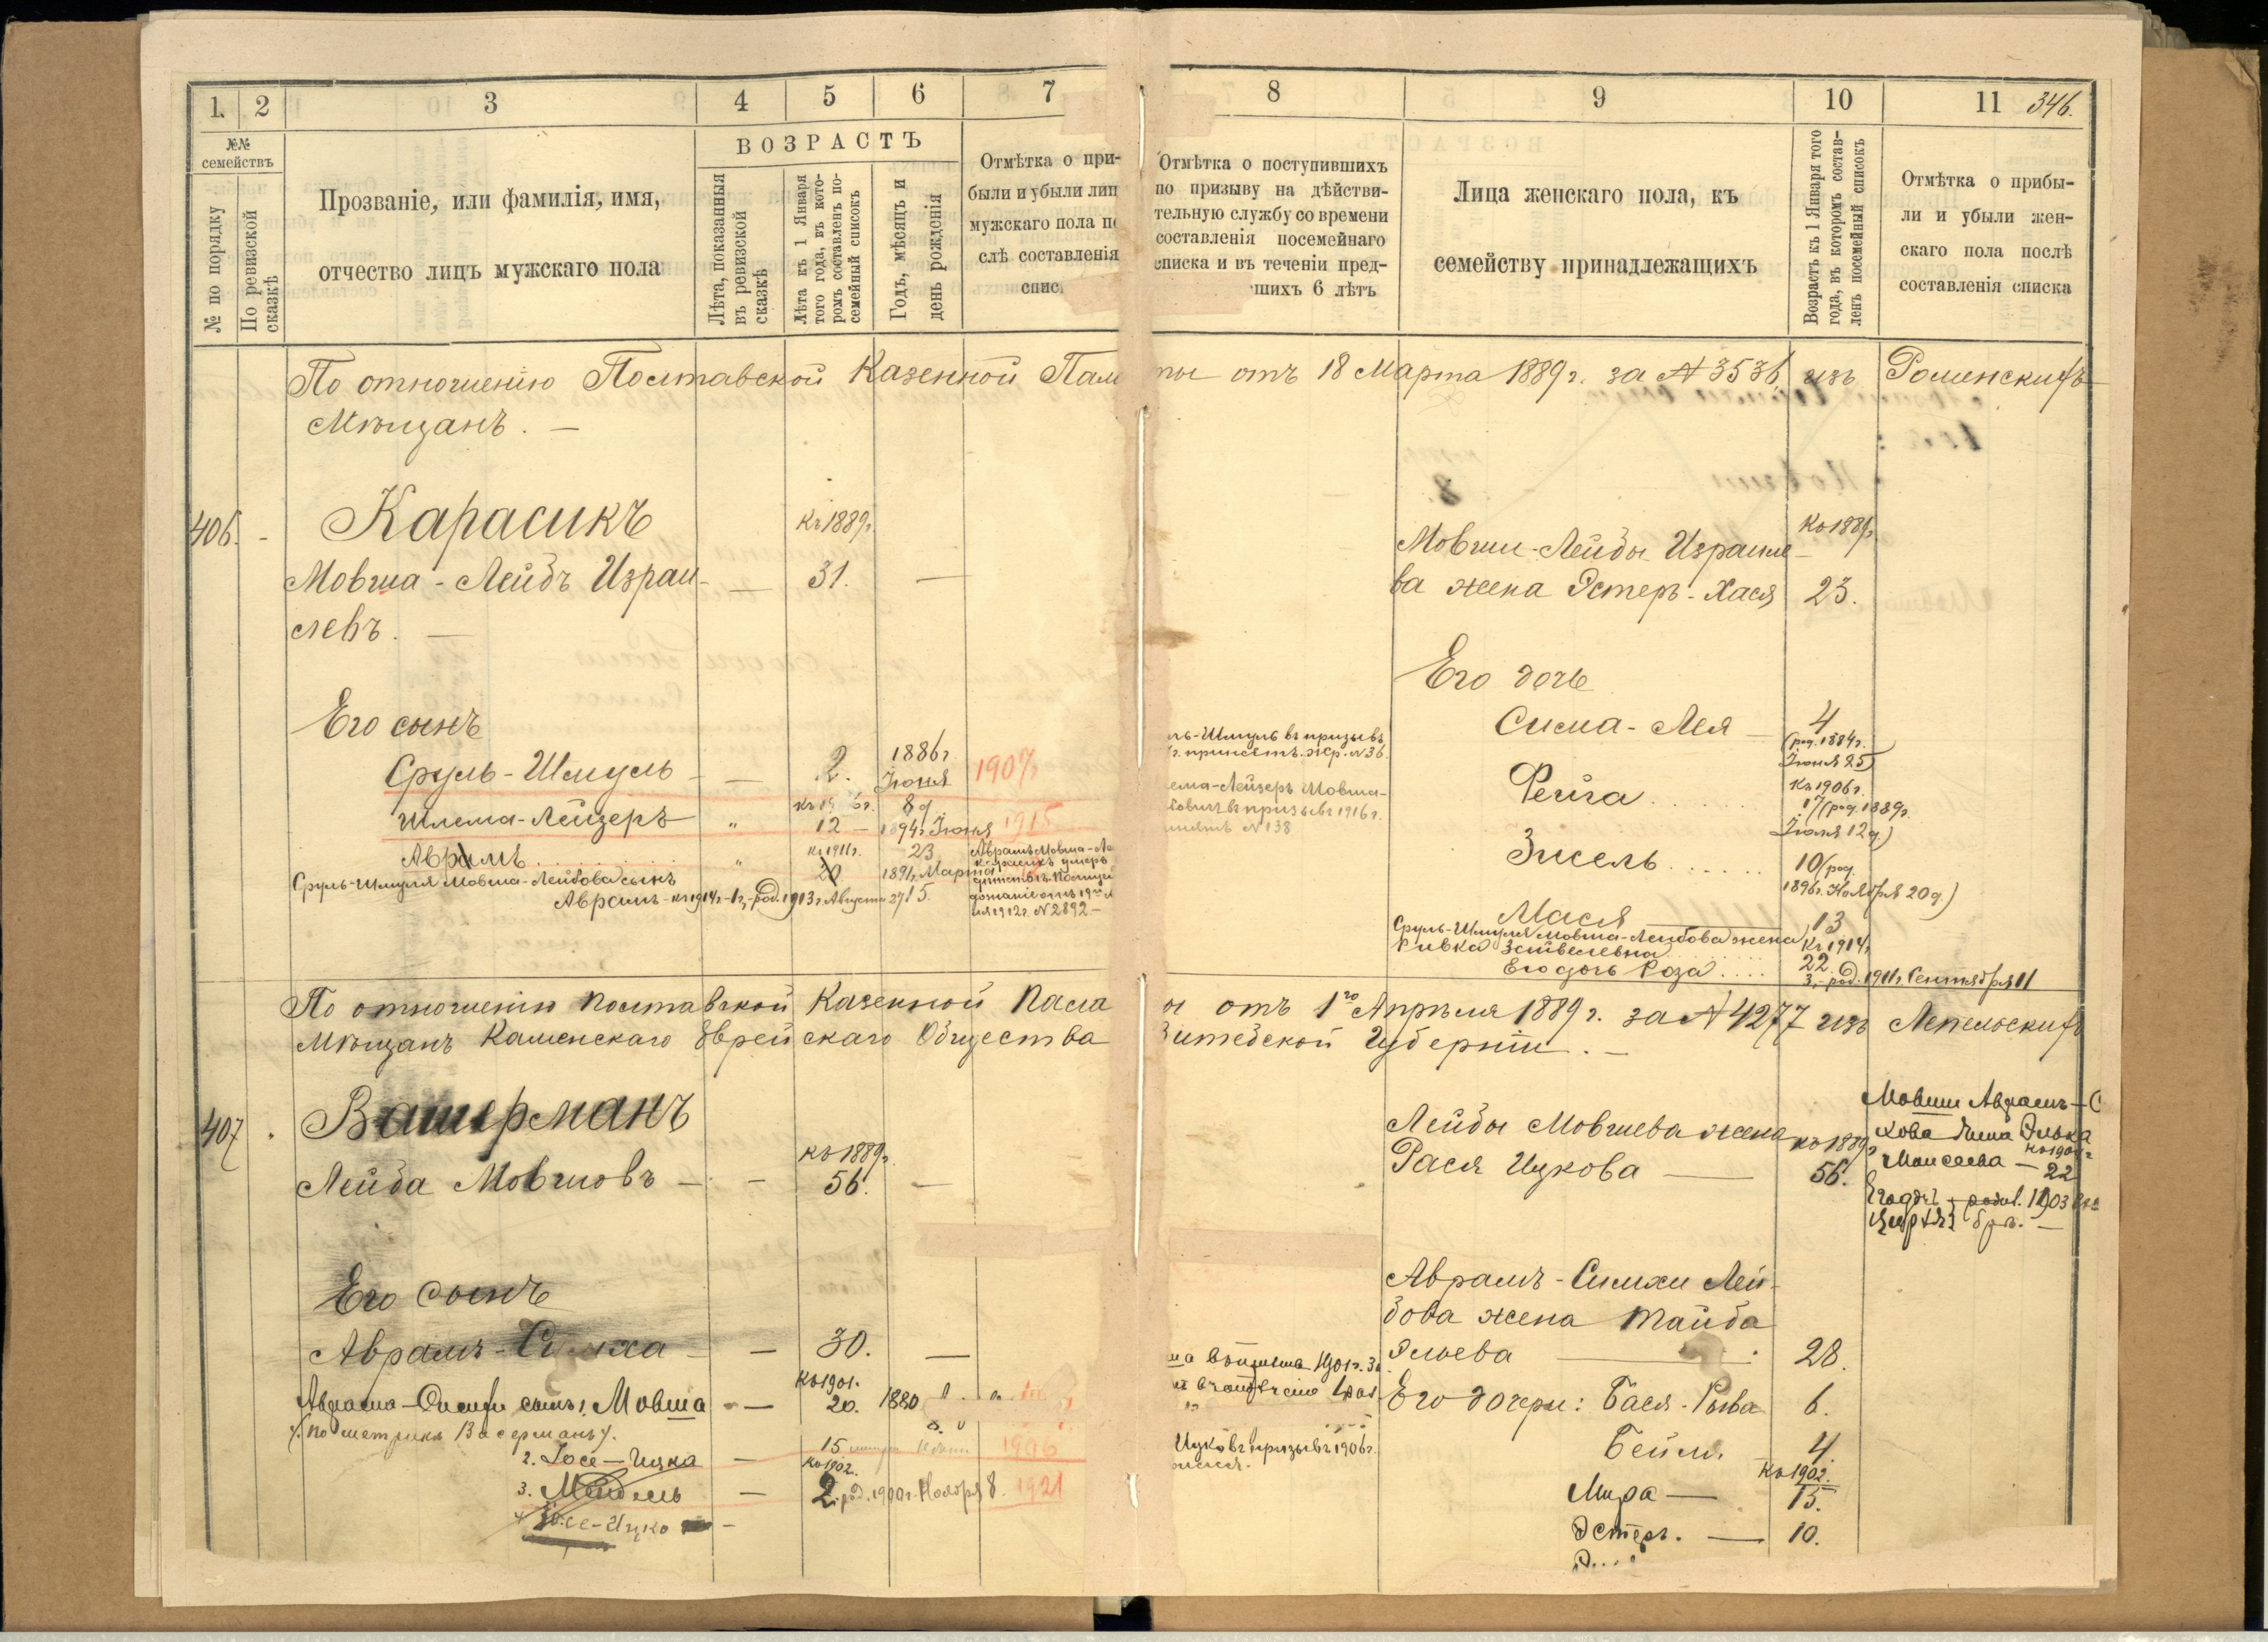 1. 2 3 4 5 6 7 8 9 10 11 346.
№№ семействъ
№ по порядку
По ревизской сказкѣ
Прозваніе, или фамилія, имя,
отчество лицъ мужскаго пола
ВОЗРАСТЪ
Лѣта, показанныя въ ревизской сказкѣ
Лѣта къ 1 Января того года, въ кото-ромъ составленъ по-семейный списокъ
Годъ, мѣсяцъ и день рожденія
Отмѣтка о при-
были и убыли лиц
мужскаго пола п
слѣ составленія
спис
Отмѣтка о поступившихъ
по призыву на дѣйстви-
тельную службу со времени
составленія посемейнаго
списка и въ теченіи пред-
шихъ 6 лѣтъ
Лица женскаго пола, къ
семейству принадлежащихъ
Возрастъ къ 1 Января того года, въ которомъ состав-ленъ посемейный списокъ
Отмѣтка о прибы-
ли и убыли жен-
скаго пола послѣ
составленія списка
По отношенію Полтавской Казенной Пала ты отъ 18 Марта 1889 г. за № 3536 изъ Роменскихъ
Мѣщанъ. —
406. - Карасикъ Къ 1889 г.
Мовша - Лейбъ Израи- — 31. —
левъ. —
Мовши - Лейбы Израиле- Къ 1889 г.
ва жена Эстеръ - Хася 23.
Его сынъ
Сруль - Шмуль — 2. 1886 г Іюня 8 д 1907 г
Шлема - Лейзеръ " 12 — 1894 г Іюня 23 1915
Аврамъ " къ 1911 г. 20 1891 г. Марта 15.
Сруль-Шмуля Мовша-Лейбова сынъ
Аврамъ - къ 1914 г. - 1 г. - род. 1913 г. Августа 27
Аврамъ Мовша-Ле
Карасикъ умеръ
1912 г. № 2892 —
ль-Шмуль въ призывъ
г. принятъ жр. № 36.
ема-Лейзеръ Мовша-
бовичъ въ призывъ 1916 г.
принятъ № 138
Его дочь
Сима - Лея — 4
(род. 1884 г.
Іюня 25)
Рейга Къ 1906 г.
17 (род. 1889 г.
Іюля 12 д.)
Зисель 10 (род.
1896 г. Ноября 20 д.)
Мася — 13
Сруль-Шмуля Мовша-Лейбова жена Къ 1914 г.
Ривка 22.
Его дочь Роза 3, - род. 1911 г. Сентября 11
По отношенію Полтавской Казенной Пала ы отъ 1го Апрѣля 1889 г. за № 4277 изъ Лепельскихъ
Мѣщанъ Каменскаго Еврейскаго Общества Витебской Губерніи. —
407 . Вашерманъ
Лейба Мовшовъ — — Къ 1889 г. 56. —
Лейбы Мовшева жена Къ 1889 г.
Рася Ицкова — 56.
Мовши Аврамъ - С
хова жена Элька
Моисеева — 22
Его дочь родив. 1903
Его сынъ
Аврамъ - Симха — — 30. —
Аврамъ - Симхи Лей-
бова жена Тайба
Эльева — 28.
Аврама - Симхи сынъ 1. Мовша — Къ 1901. 20. 1880
/. по метрикѣ Васерманъ /.
2. Іосе - Ицка — 15 1906
3. Мендель — Къ 1902. 2. род. 1900 г. Ноября 8. 1921
4 Іосе - Ицко
Ицковъ призывъ 1906 г.
Его дочери: Бася - Рыва 6.
Бейля. 4.
Къ 1902.
Мира — 15.
Эстеръ. — 10.